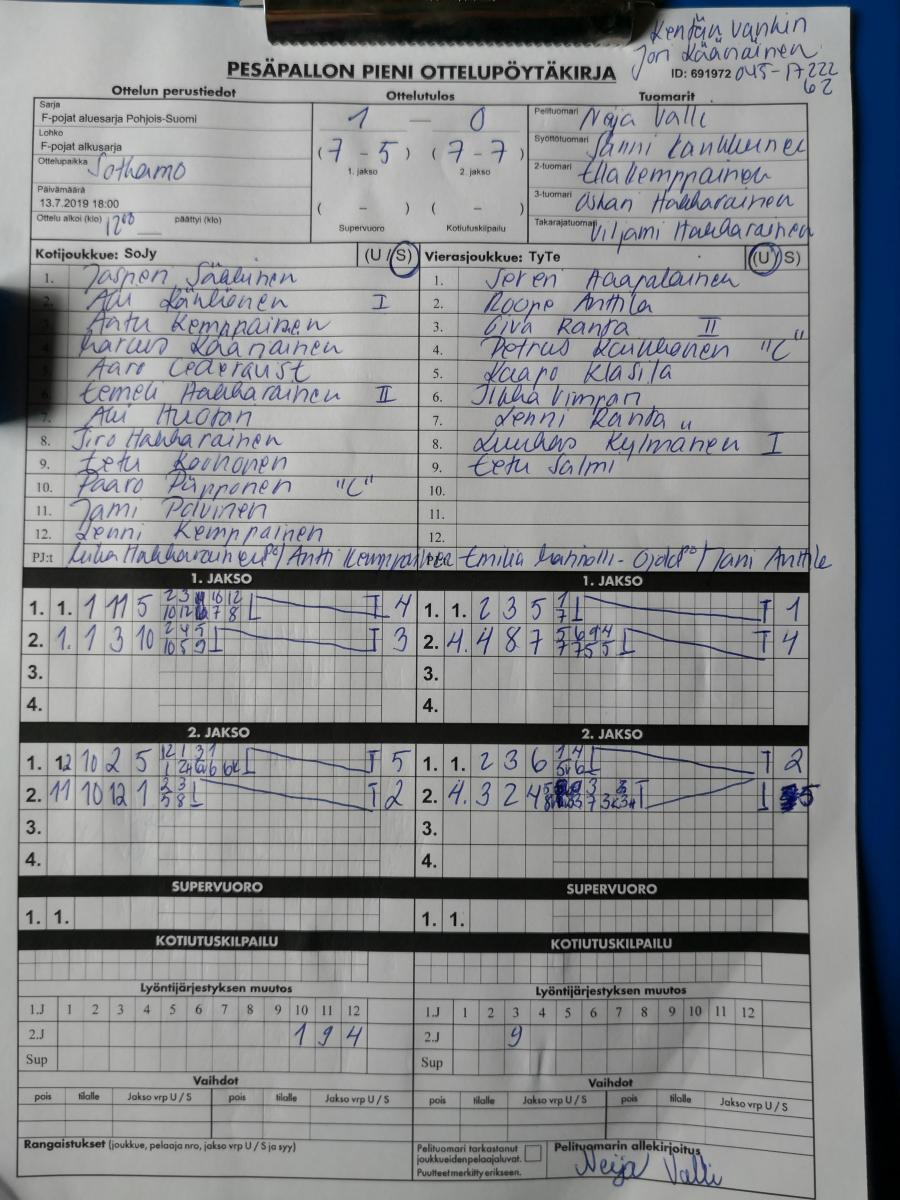 Kentän vanhin
Jori Käänäinen
PESÄPALLON PIENI OTTELUPÖYTÄKIRJA
ID: 691972 045-17222
62
Ottelun perustiedot
Ottelutulos
Tuomarit
Sarja
F-pojat aluesarja Pohjois-Suomi
Lohko
F-pojat alkusarja
Ottelupaikka Sotkamo
Päivämäärä
13.7.2019 18:00
Ottelu alkoi (klo) päättyi (klo)
1 — 0
(7 - 5) (7 - 7)
1. jakso 2. jakso
( - ) ( - )
Supervuoro Kotiutuskilpailu
Pelituomari Neija Valli
Syöttötuomari Sanni
2-tuomari Ella Kemppainen
3-tuomari Oskari Hakkarainen
Takarajatuomari Viljami Hakkarainen
Kotijoukkue: SoJy (U / S)
1. Jasperi Sääkinen
2.
3. Aatu Kemppainen
4. Marcus Käänäinen
5. Aaro
6. Eemeli Hakkarainen II
7. Huotari
8. Jiro Hakkarainen
9. Eetu Korhonen
10. Paavo Piipponen "C"
11. Jami Polvinen
12. Lenni Kemppainen
PJ:t Juha Hakkarainen / Antti Kemppainen
Vierasjoukkue: TyTe (U / S)
1. Severi Haapalainen
2. Roope Anttila
3. Ranta II
4. Petrus Kaikkonen "C"
5. Kaapo Klasila
6. Jukka
7. Lenni Ranta
8. Luukas Kylmänen I
9. Eetu Salmi
10.
11.
12.
PJ:t Emilia / Jani Anttila
1. JAKSO
1. 1. 1 11 5 4
2. 1. 1 3 10 3
3.
4.
1. JAKSO
1. 1. 2 3 5 1
2. 4. 4 8 7 4
3.
4.
2. JAKSO
1. 12 10 2 5 5
2. 11 10 12 1 2
3.
4.
2. JAKSO
1. 1. 2 3 6 2
2. 4. 3 2 4 5
3.
4.
SUPERVUORO
1. 1.
SUPERVUORO
1. 1.
KOTIUTUSKILPAILU
KOTIUTUSKILPAILU
Lyöntijärjestyksen muutos
1.J 1 2 3 4 5 6 7 8 9 10 11 12
2.J 1 9 4
Sup
Lyöntijärjestyksen muutos
1.J 1 2 3 4 5 6 7 8 9 10 11 12
2.J 9
Sup
Vaihdot
pois tilalle Jakso vrp U / S pois tilalle Jakso vrp U / S
Vaihdot
pois tilalle Jakso vrp U / S pois tilalle Jakso vrp U / S
Rangaistukset (joukkue, pelaaja nro, jakso vrp U / S ja syy)
Pelituomari tarkastanut
joukkueidenpelaajaluvat.
Puutteetmerkittyerikseen.
Pelituomarin allekirjoitus
Neija Valli